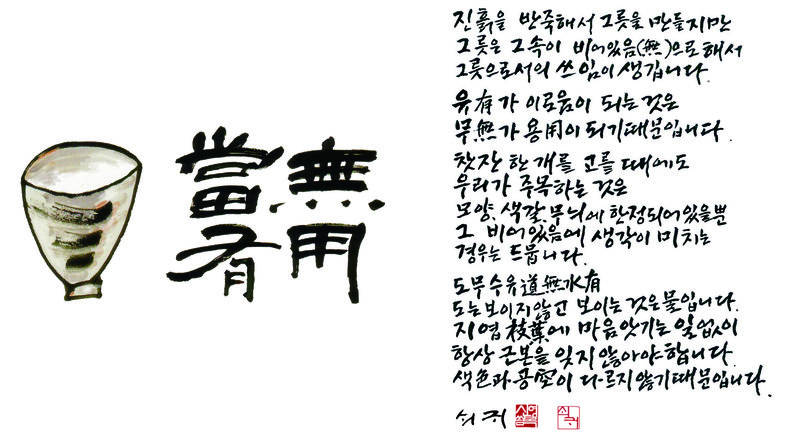 當無
有用
진흙을 반죽해서 그릇을 만들지만
그릇은 그 속이 비어있음(無)으로 해서
그릇으로서의 쓰임이 생깁니다.
유有가 이로움이 되는 것은
무無가 용用이 되기 때문입니다.
찻잔 한 개를 고를 때에도
우리가 주목하는 것은
모양, 색깔, 무늬에 한정되어있을뿐
그 비어있음에 생각이 미치는
경우는 드뭅니다.
도무수유道無水有
도는 보이지 않고 보이는 것은 물입니다.
지엽枝葉에 마음 앗기는 일 없이
항상 근본을 잊지 않아야 합니다.
색色과 공空이 다르지 않기 때문입니다.
쇠귀 쇠귀